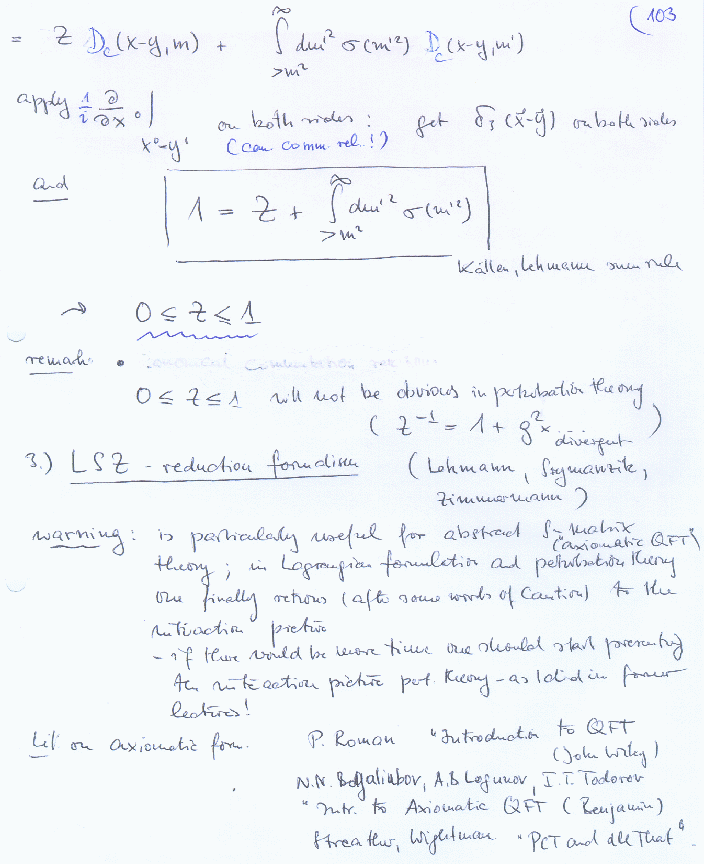 (103
= Z D_c(x-y,m) + ∫_{>m²}^∞ dm'² σ(m'²) D_c(x-y,m')
apply 1/i ∂/∂x⁰ |_{x⁰=y⁰} on both sides: get δ₃(x⃗-y⃗) on both sides
(can. comm. rel.!)
and
1 = Z + ∫_{>m²}^∞ dm'² σ(m'²)
Källen, Lehmann sum rule
→ 0 ≤ Z ≤ 1
remark: •
0 ≤ Z ≤ 1 will not be obvious in perturbation theory
( Z⁻¹ = 1 + g² × divergent )
3.) LSZ - reduction formalism (Lehmann, Szymanzik,
Zimmermann)
warning: is particularly useful for abstract S-matrix
theory ("axiomatic QFT"); in Lagrangian formulation and perturbation theory
one finally returns (after some words of caution) to the
interaction picture
- if there would be more time one should start presenting
the interaction picture pert. theory - as I did in former
lectures!
Lit. on axiomatic form. P. Roman "Introduction to QFT
(John Wiley)
N.N. Bogoliubov, A.B. Logunov, I.T. Todorov
"Intr. to Axiomatic QFT (Benjamin)
Streater, Wightman "PCT and all That".